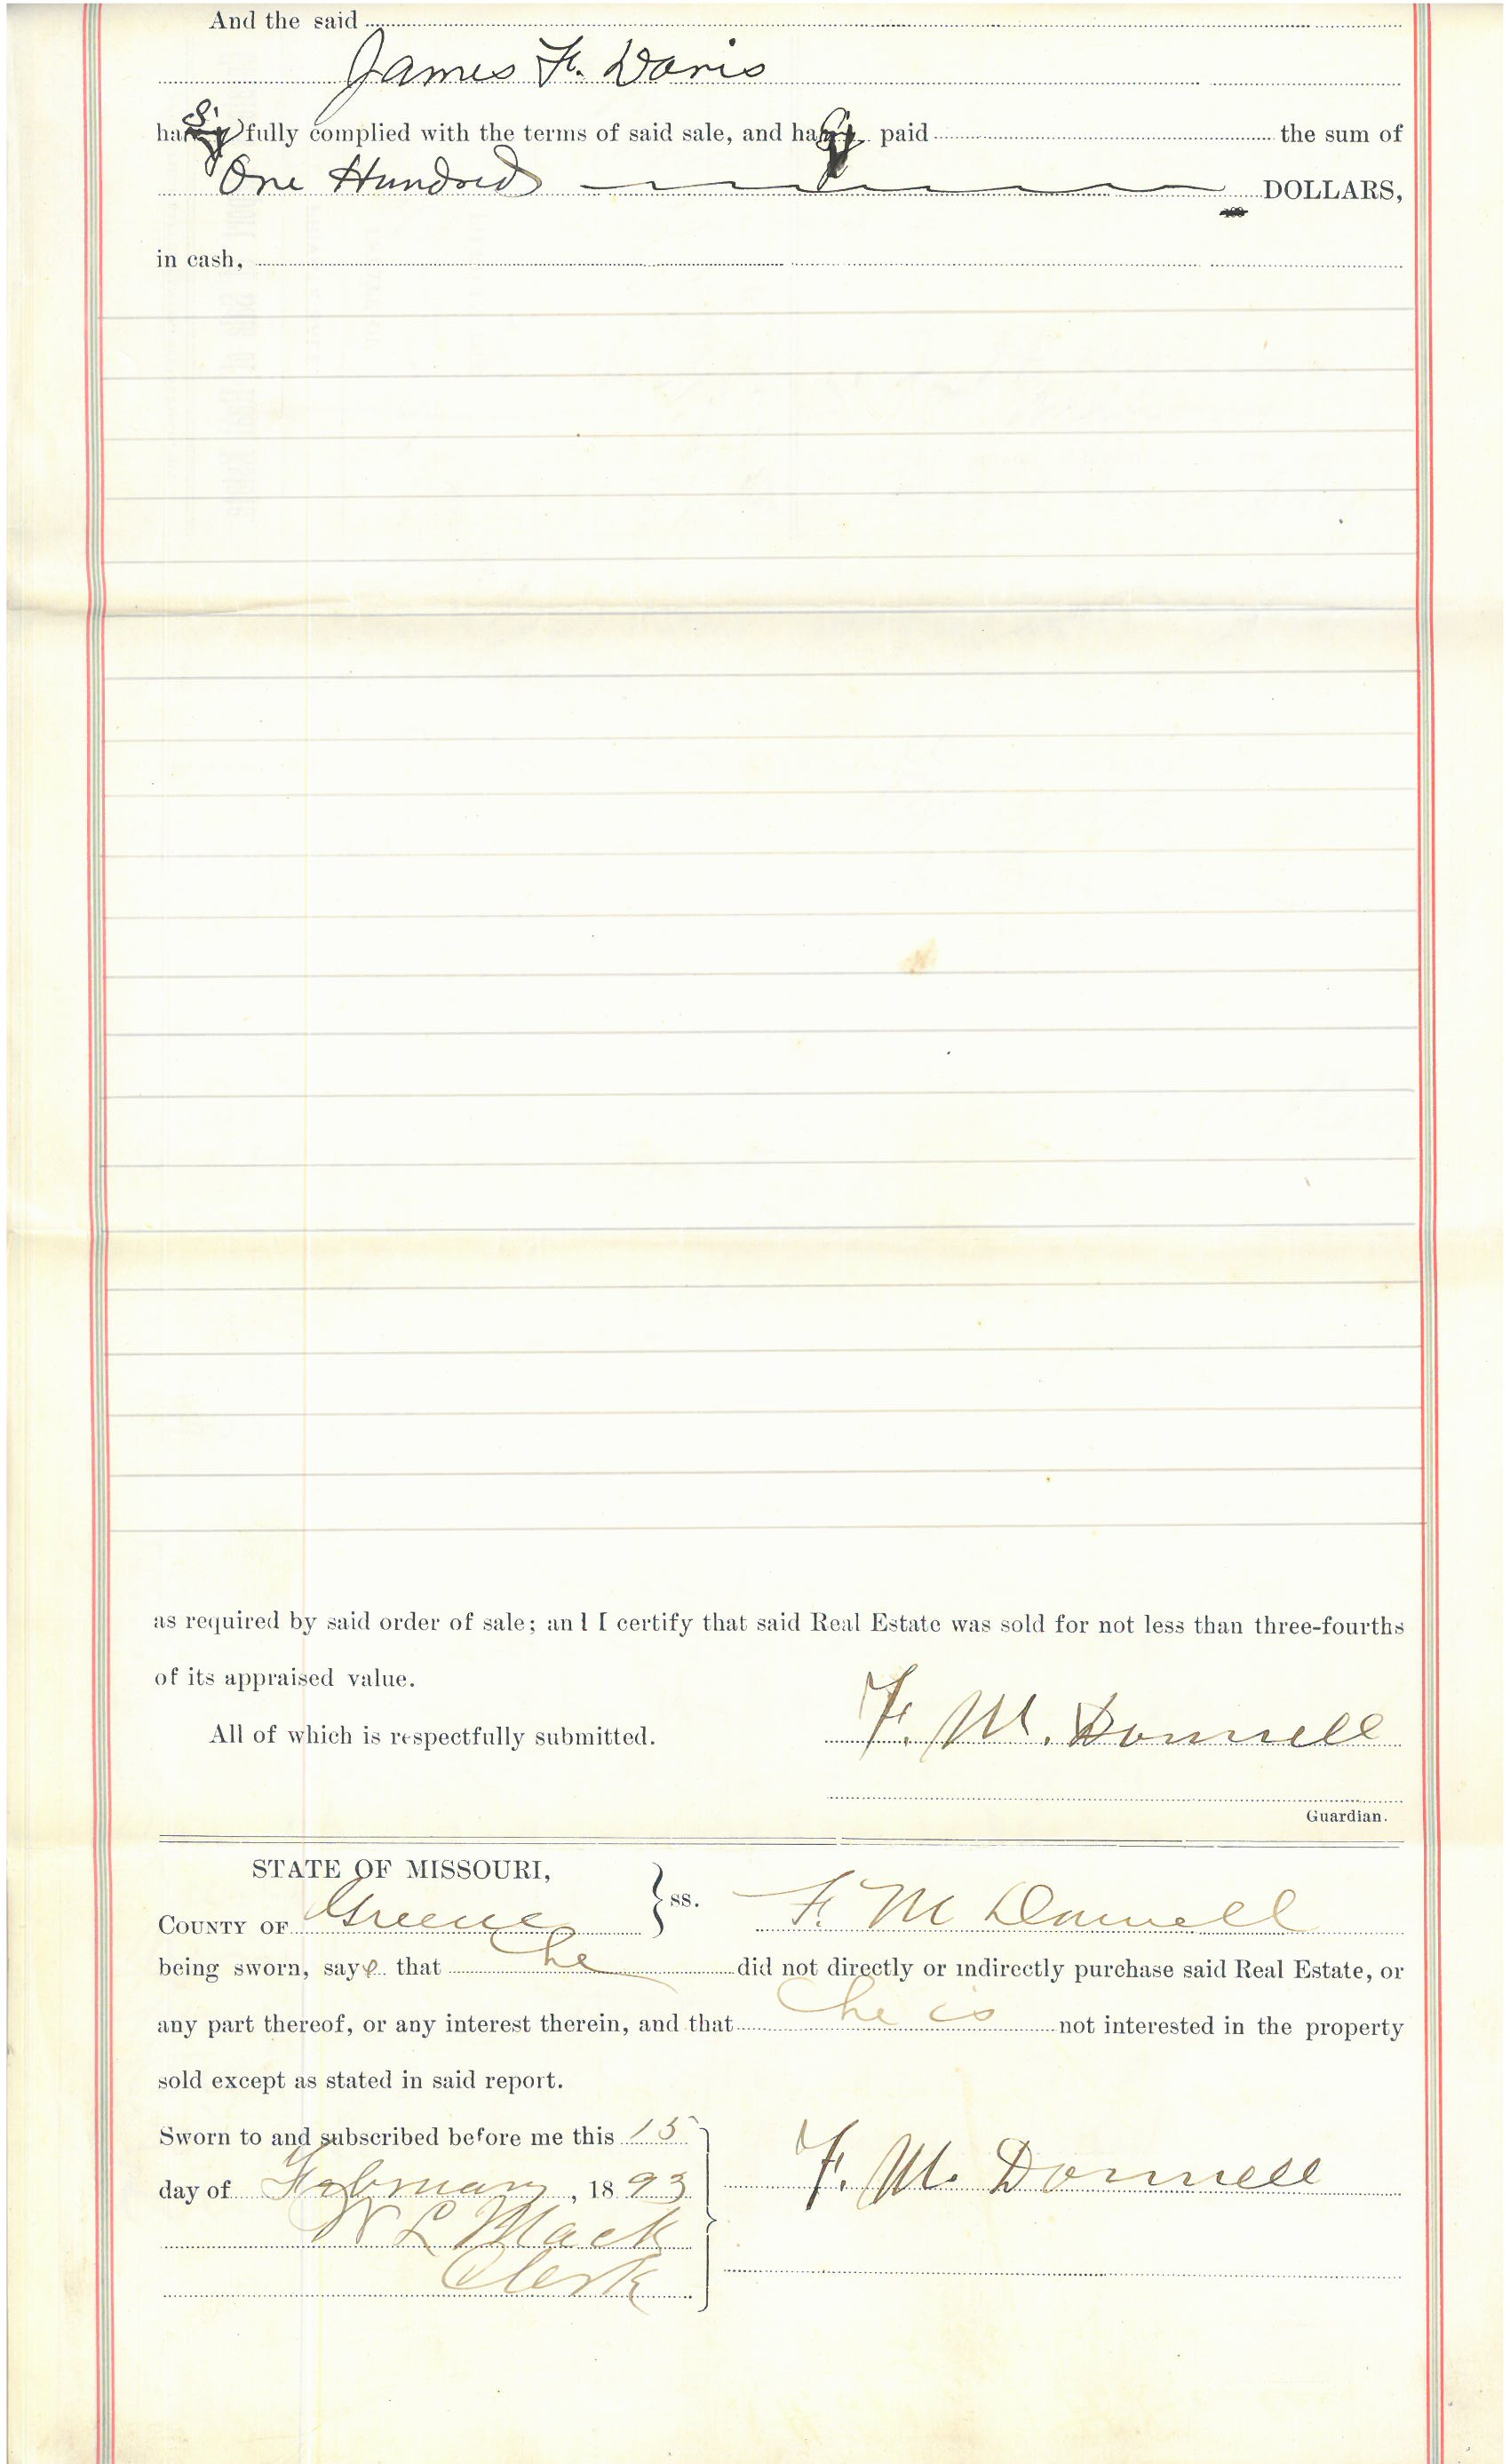 And the said
James H. Davis
has fully complied with the terms of said sale, and has paid the sum of
One Hundred DOLLARS,
in cash,
as required by said order of sale; and I certify that said Real Estate was sold for not less than three-fourths
of its appraised value.
All of which is respectfully submitted. F. M. Donnell
Guardian.
STATE OF MISSOURI,
COUNTY OF Greene } ss. F. M Donnell
being sworn, says that he did not directly or indirectly purchase said Real Estate, or
any part thereof, or any interest therein, and that he is not interested in the property
sold except as stated in said report.
Sworn to and subscribed before me this 15
day of February, 1893 F. M. Donnell
Mack
Clerk